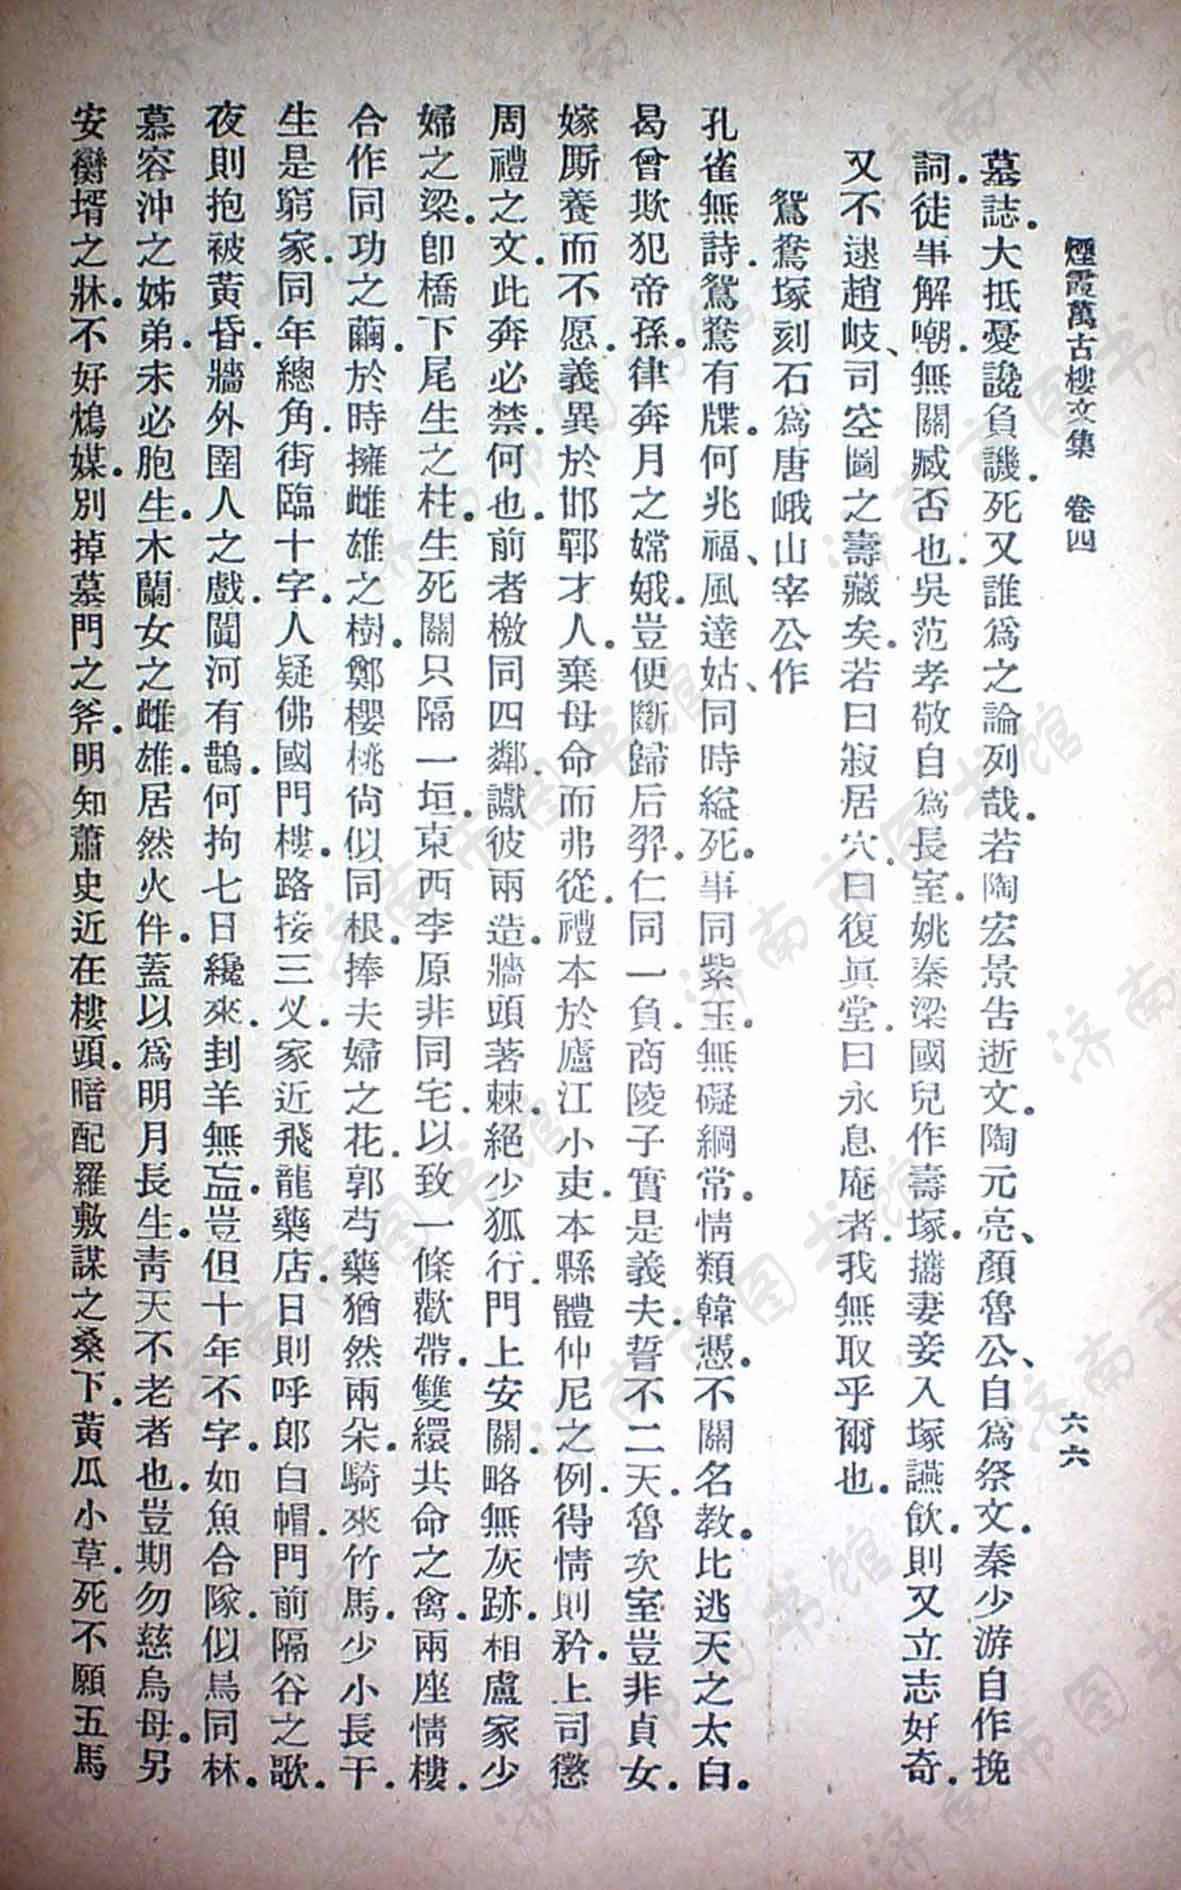 煙霞萬古樓文集　卷四　六六
墓誌。大抵憂讒負譏。死又誰爲之論列哉。若陶宏景吿逝文。陶元亮、顏魯公、自爲祭文。秦少游自作挽
詞。徒事解嘲。無關臧否也。吳范孝敬自爲長室。姚秦梁國兒作壽塚。攜妻妾入塚讌飲。則又立志好奇。
又不逮趙岐、司空圖之壽藏矣。若曰寂居穴。曰復眞堂。曰永息庵者。我無取乎爾也。
鴛鴦塚刻石爲唐峨山宰公作
孔雀無詩。鴛鴦有牒。何兆福、風達姑、同時縊死。事同紫玉。無礙綱常。情類韓憑。不關名教。比逃天之太白。
曷曾欺犯帝孫。律奔月之嫦娥。豈便斷歸后羿。仁同一負。商陵子實是義夫。誓不二天。魯次室豈非貞女。
嫁厮養而不愿。義異於邯鄲才人。棄母命而弗從。禮本於廬江小吏。本縣體仲尼之例。得情則矜。上司懲
周禮之文。此奔必禁。何也。前者檄同四鄰。讞彼兩造。牆頭著棘。絕少狐行。門上安關。略無灰跡。相盧家少
婦之梁。卽橋下尾生之柱。生死關只隔一垣。東西李原非同宅。以致一條歡帶。雙繯共命之禽。兩座情樓。
合作同功之繭。於時擁雌雄之樹。鄭櫻桃尙似同根。捧夫婦之花。郭芍藥猶然兩朵。騎來竹馬。少小長干。
生是窮家。同年總角。街臨十字。人疑佛國門樓。路接三义。家近飛龍藥店。日則呼郞白帽。門前隔谷之歌。
夜則抱被黃昏。牆外圉人之戲。闐河有鵲。何拘七日纔來。刲羊無衁。豈但十年不字。如魚合隊。似鳥同林。
慕容沖之姊弟。未必胞生。木蘭女之雌雄。居然火件。蓋以爲明月長生。靑天不老者也。豈期勿慈烏母。另
安嚮壻之牀。不好鴆媒。別掉墓門之斧。明知蕭史近在樓頭。暗配羅敷謀之桑下。黃瓜小草。死不願五馬